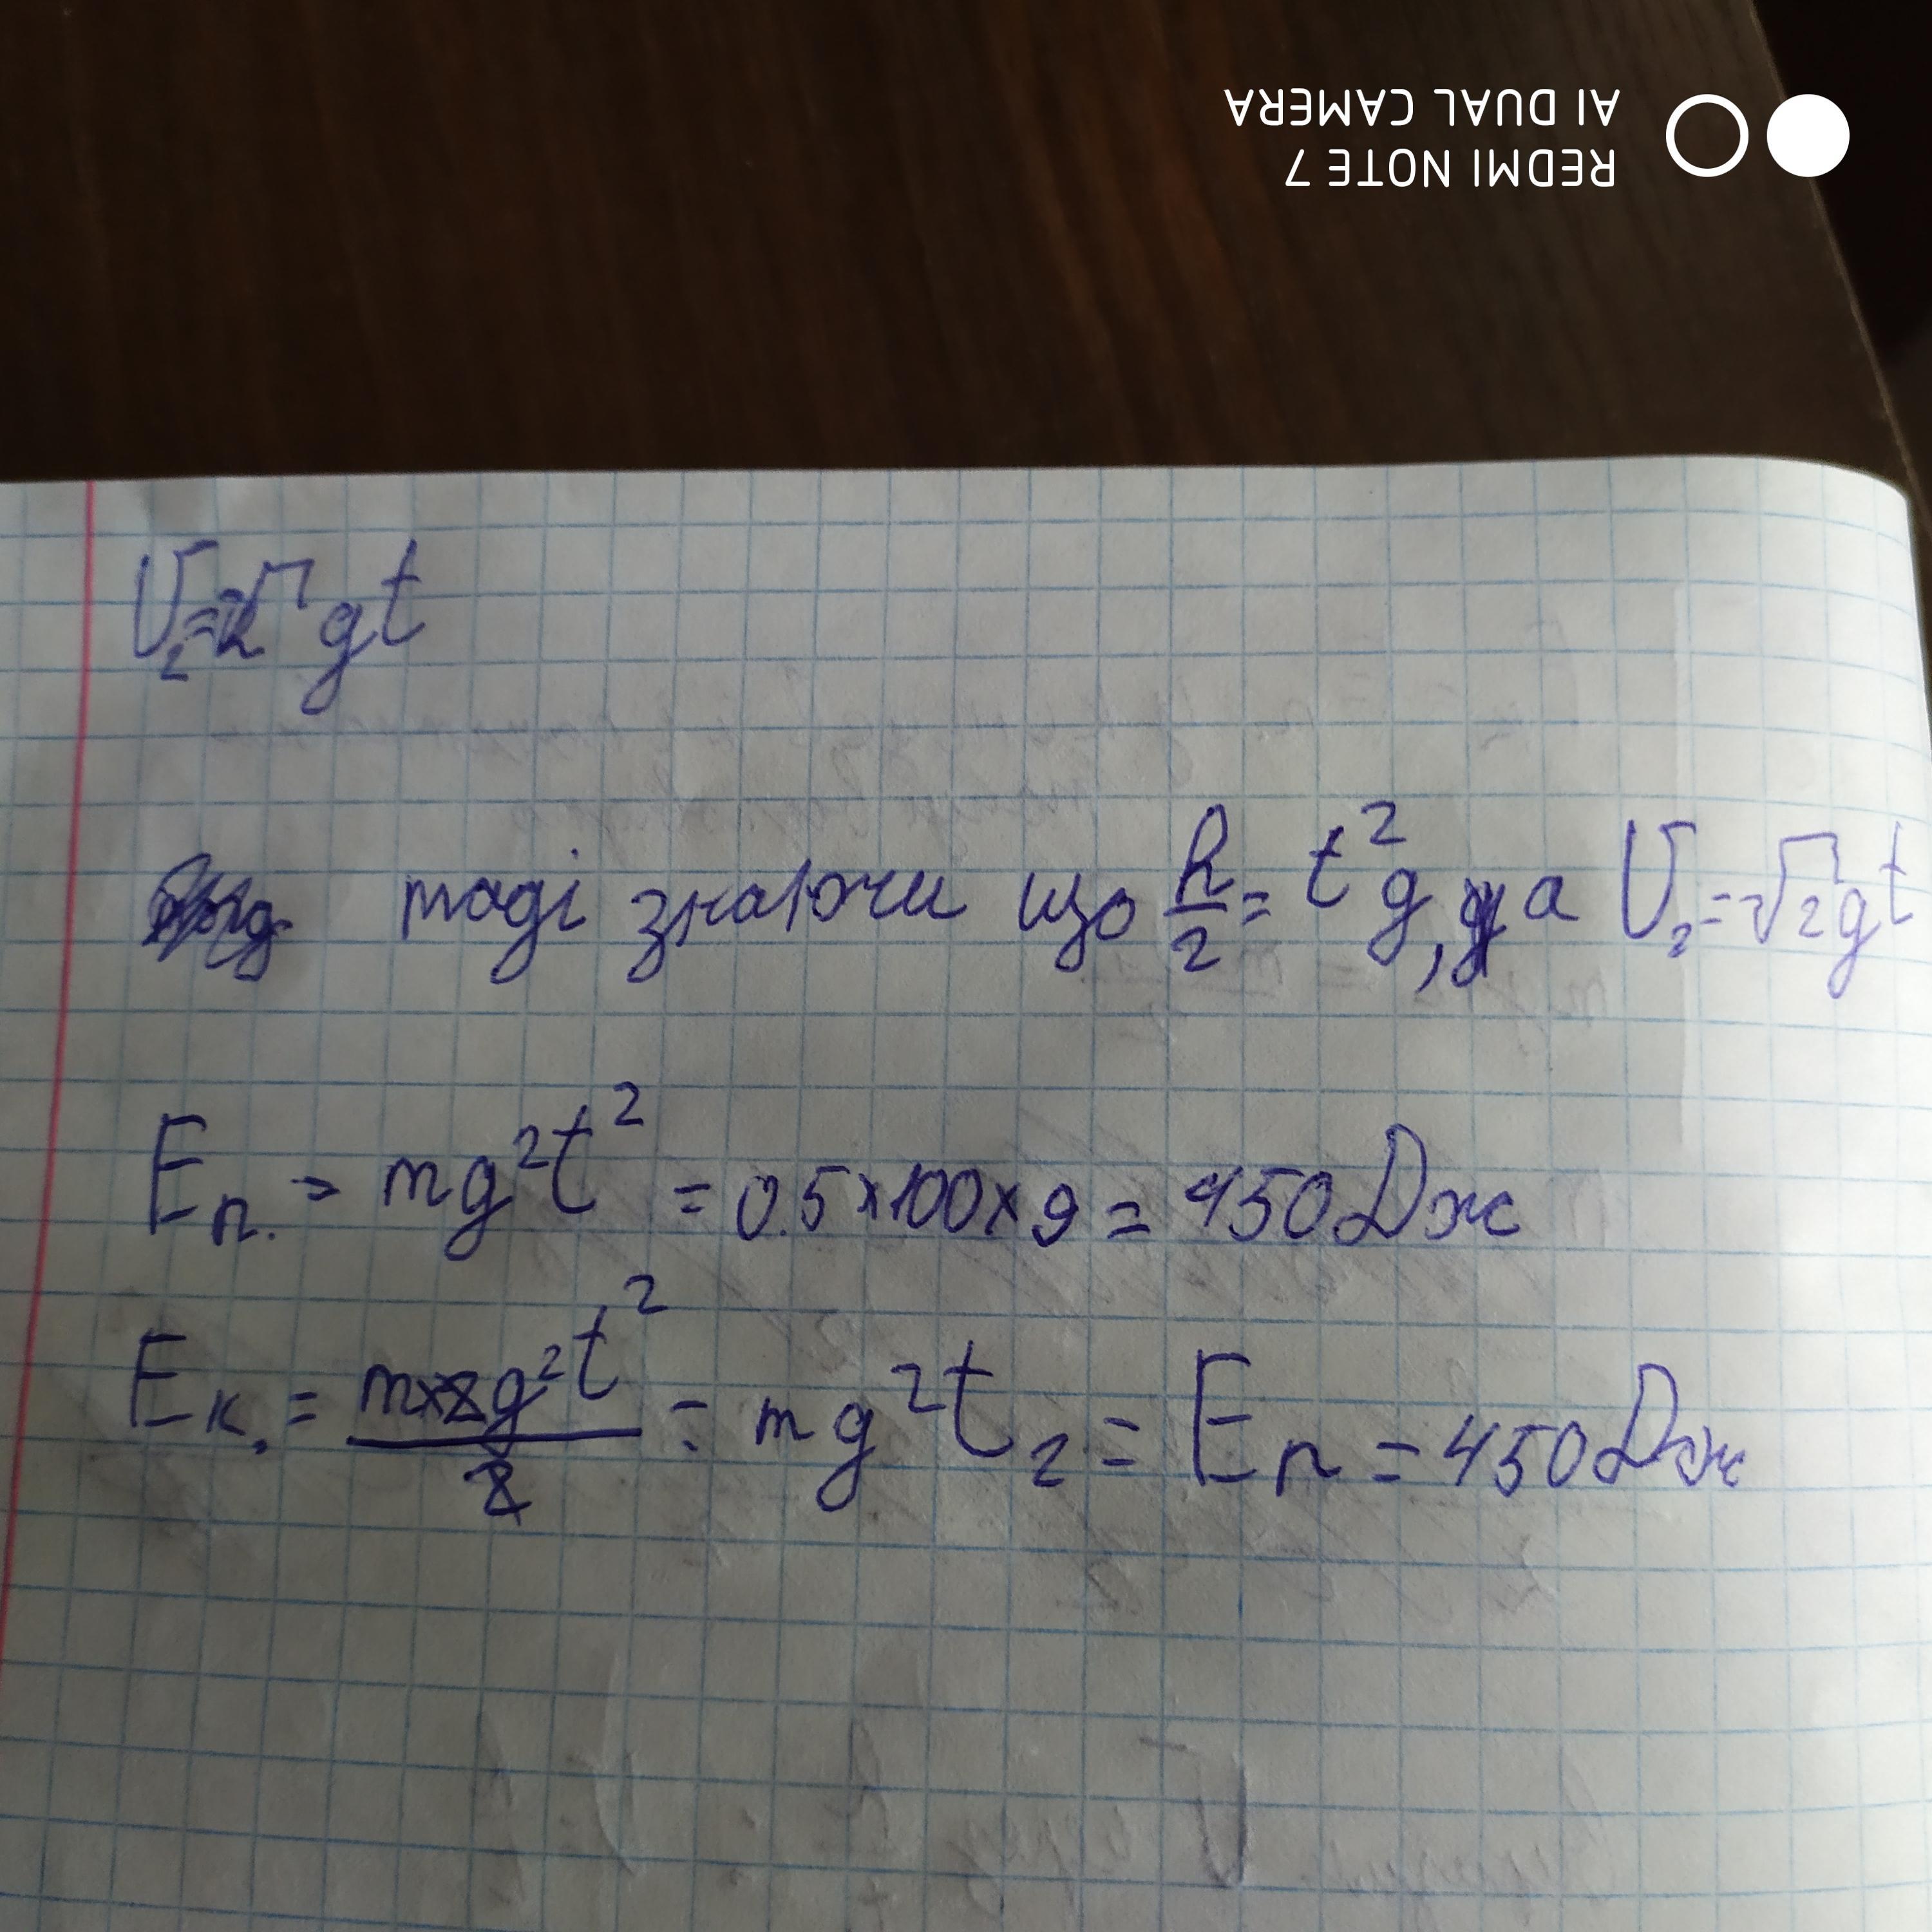 REDMI NOTE 7
AI DUAL CAMERA
V₂=√2gt
тоді знаючи що h/2 = t²g, а V₂=√2gt
Eп. = mg²t² = 0.5×100×9 = 450 Дж
Eк. = m×2g²t²/2 = mg²t₂ = Eп = 450 Дж